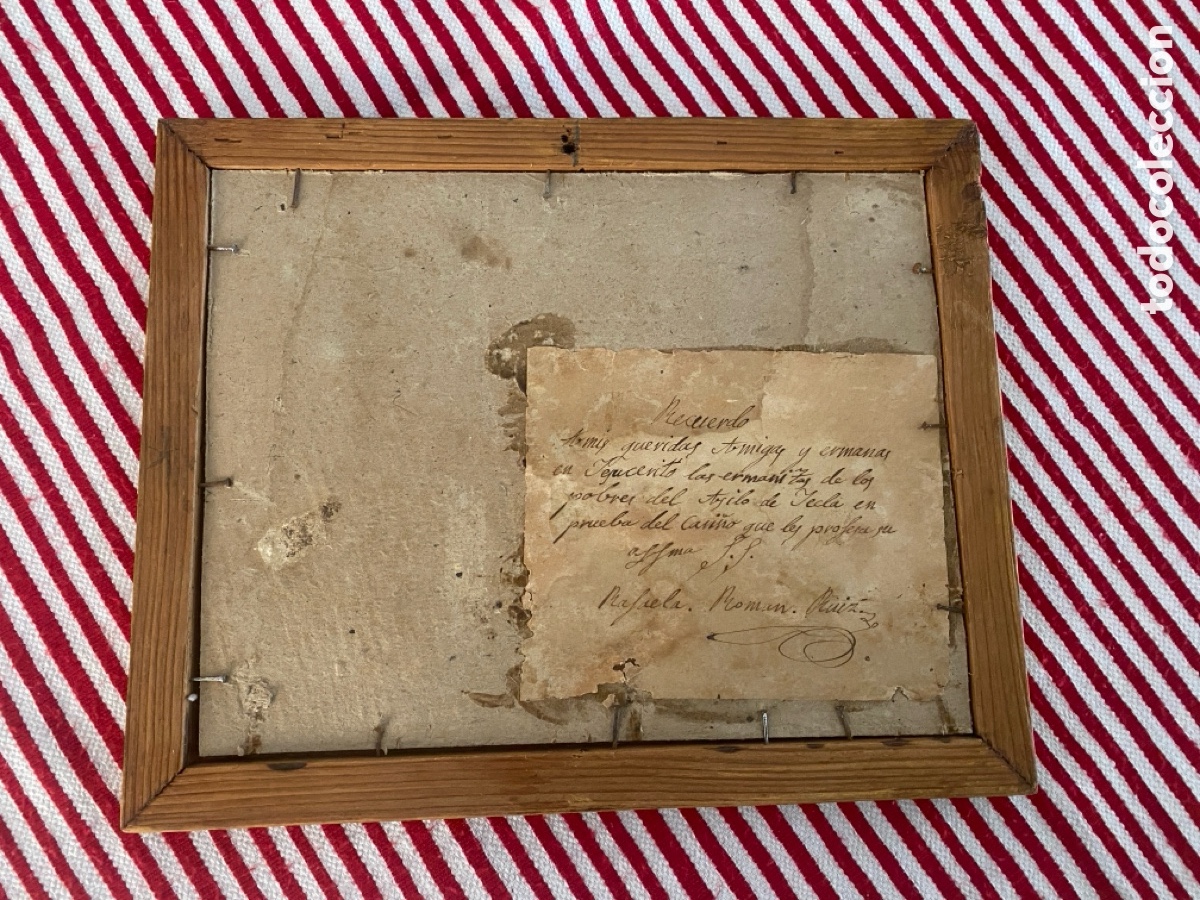 Recuerdo
A mis queridas Amigas y ermanas
en Jesucrito las ermanitas de los
pobres del Asilo de Yecla en
prueba del Cariño que les profesa su
affma S. S.
Rafaela. Roman. Ruiz
todocoleccion